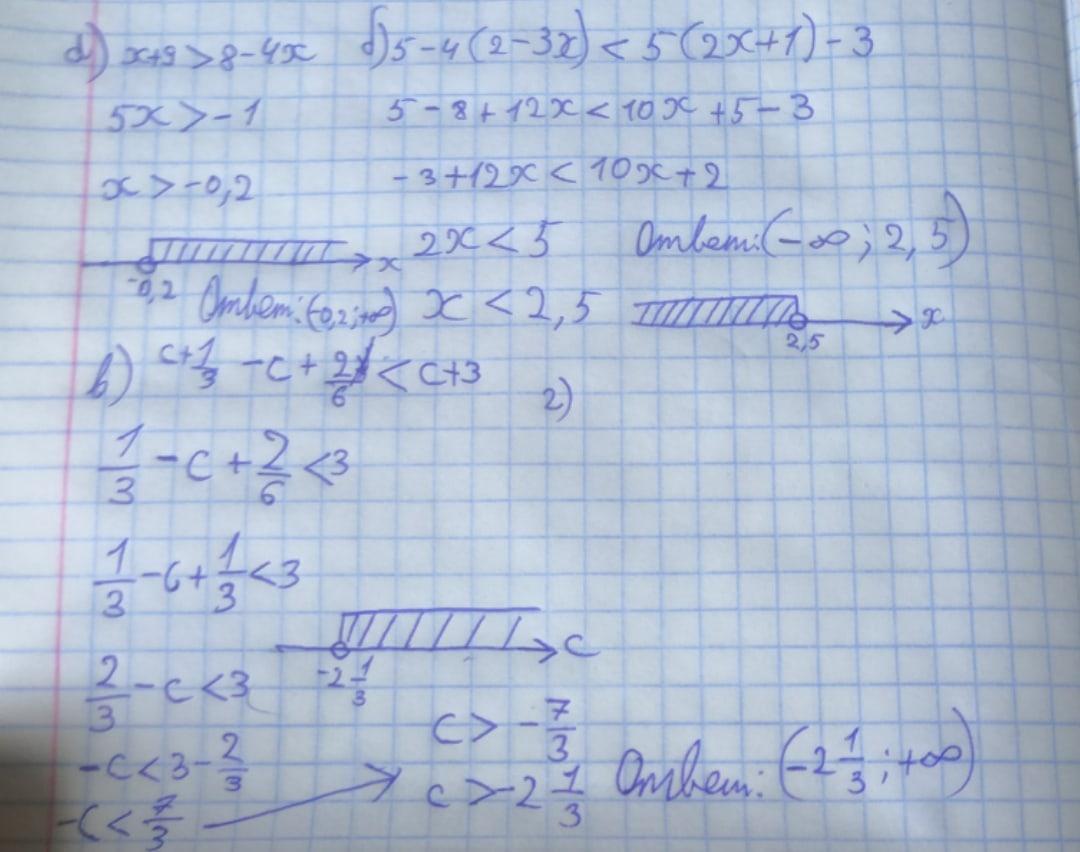 а) x+9>8-4x б) 5-4(2-3x)<5(2x+1)-3
5x>-1 5-8+12x<10x+5-3
x>-0,2 -3+12x<10x+2
2x<5 Ответ:(-∞;2,5)
x
-0,2 Ответ:(-0,2;+∞) x<2,5 x
2,5
в) c+1/3 -c+2/6<c+3
г)
1/3-c+2/6<3
1/3-c+1/3<3
c
-2 1/3
2/3-c<3
c>-7/3
-c<3-2/3 Ответ: (-2 1/3;+∞)
c>-2 1/3
-c<7/3